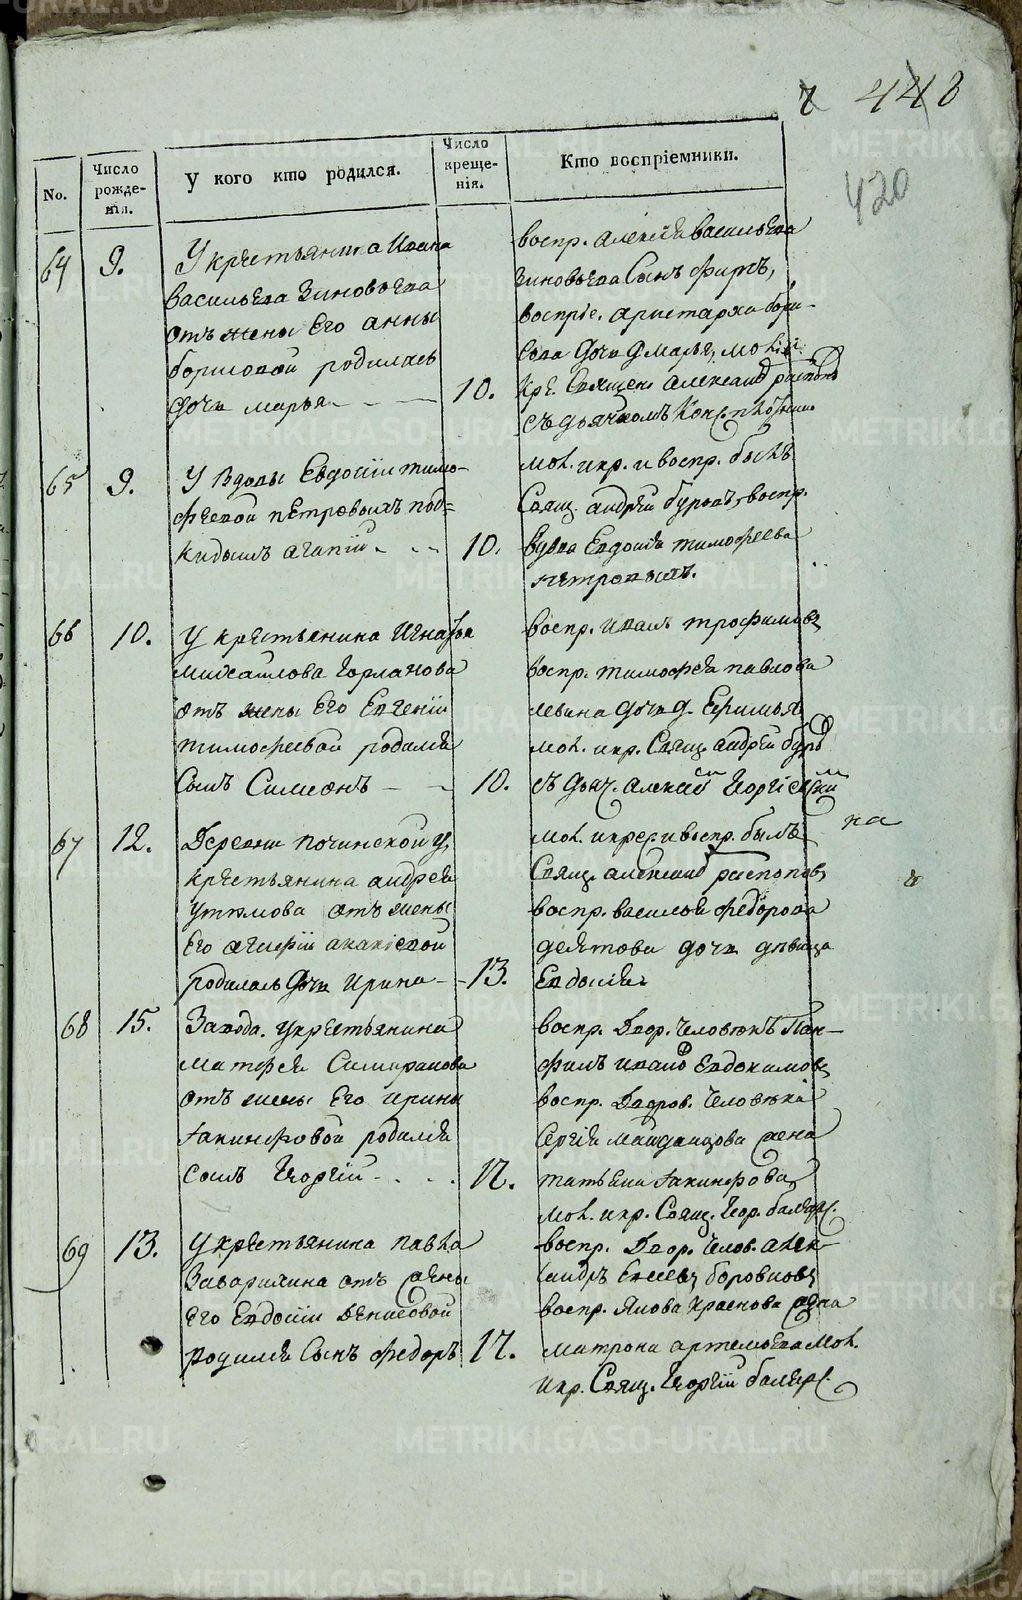 448
420
No.
Число рожденія.
У кого кто родился.
Число крещенія.
Кто воспріемники.
64 9.
У крестьянина Ивана
Васильева Зиновьева
отъ жены Его Анны
борисовой родилась
дочь марья
10.
воспр. алексѣя васильева
Зиновьева Сынъ
воспріе. аристарха бори-
сова дочь
Кре. Священ. Александ
съ дьячкомъ
65 9.
У вдовы Евдокіи тимо-
феевой петровыхъ под-
кидышъ агапій
10.
мол. и кр. и воспр. былъ
Свящ. андрей буровъ, воспр.
вдова Евдокія тимофеева
петровыхъ.
66 10.
У крестьянина Игнатья
михайлова Горланова
отъ жены Его Евгеніи
тимофеевой родился
Сынъ Симеонъ
10.
воспр. иванъ трофимовъ
воспр. тимофея павлова
левина дочь д.
мол. и кр. Свящ. андрей буровъ
съ дьяч. алексій Георгіевскій
67 12.
Деревни починской у
крестьянина андрея
утямова отъ жены
Его агафіи
родилась дочь Ирина
13.
мол. и крес. и воспр. былъ
Свящ. александ распоповъ
воспр. василья федорова
десятова дочь дѣвица
Евдокія
на
68 15.
Завода. У крестьянина
матфея
отъ жены Его Ирины
Іакинфовой родился
сынъ Георгій
17.
воспр. Двор. Человѣкъ Пан-
филъ иванъ Евдокимовъ
воспр. Дворов. Человѣка
Сергѣя майданцова жена
татьяна Іакинфова
мол. и кр. Свящ. Геор.
69 13.
У крестьянина павла
Заварихина отъ жены
его Евдокіи Денисовой
родился Сынъ Федоръ
17.
воспр. Двор. Челов. алек-
сандръ Боровковъ
воспр. Якова Краснова жена
матрона артемьева мол.
и кр. Свящ. Георгій
METRIKI.GASO-URAL.RU